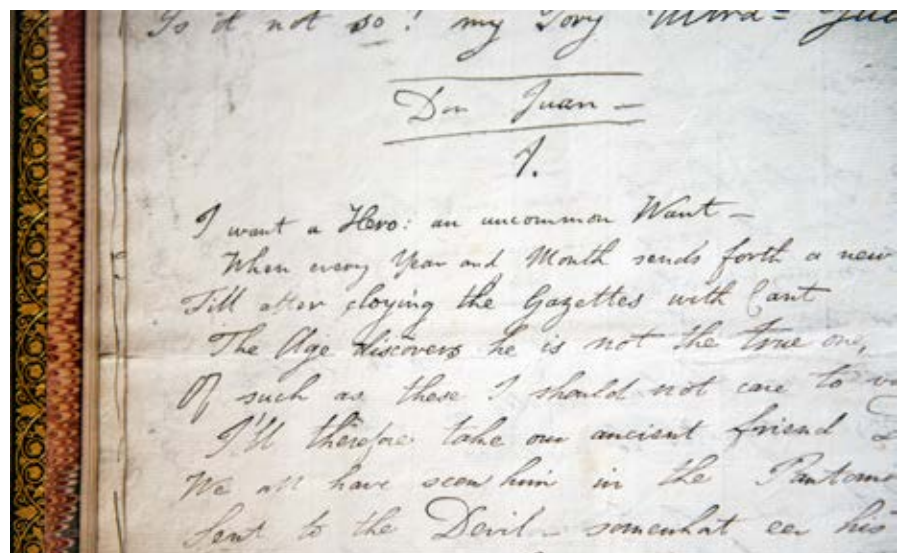 Is it not so! my Tory
Don Juan –
1.
I want a Hero: an uncommon Want –
When every Year and Month sends forth a new
Till after cloying the Gazettes with Cant
The Age discovers he is not the true one,
Of such as these I should not care to
I'll therefore take our ancient friend
We all have seen him in the Pantom
Sent to the Devil – somewhat ere his